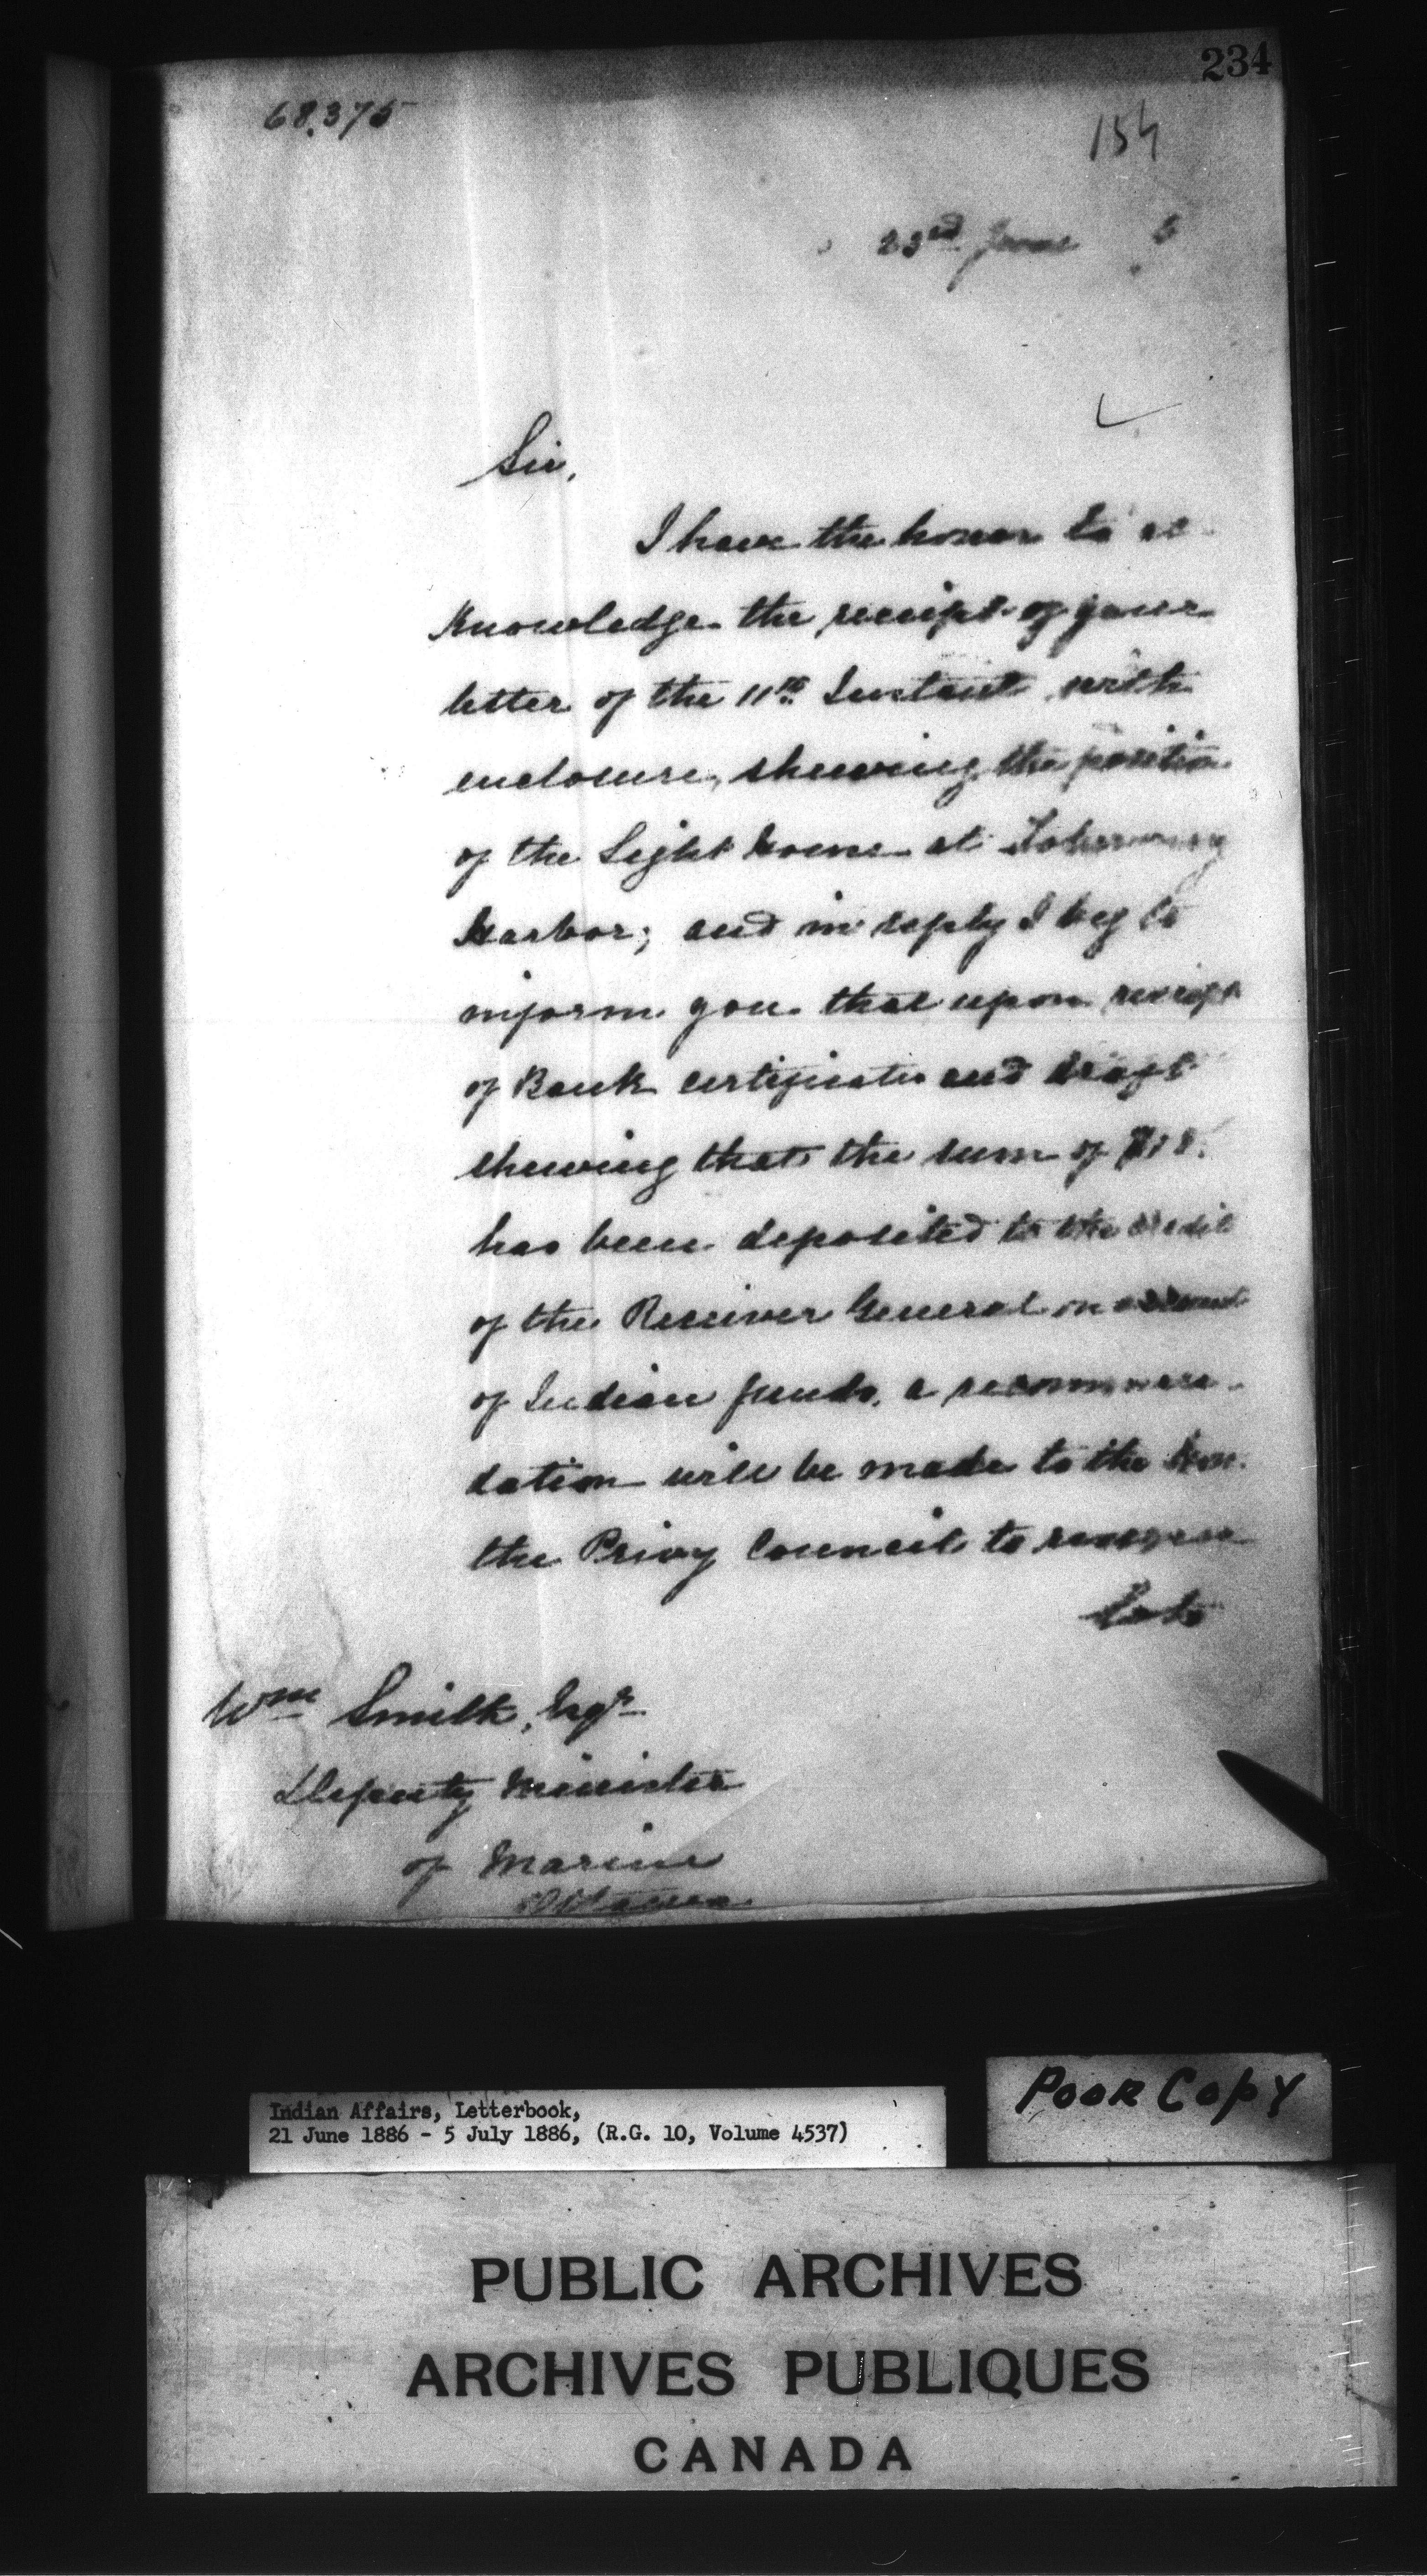 234
68.375
154
23rd June 6
Sir,
I have the honor to ac-
knowledge the receipt of your
letter of the 11th Instant with
enclosure, shewing the position
of the Light house at Tobermory
Harbor; and in reply I beg to
inform you that upon receipt
of Bank certificate and draft
shewing that the sum of
has been deposited to the credit
of the Receiver General on account
of Indian funds, a recommen-
dation will be made to the Hon.
the Privy Council to
Wm Smith, Esqr
Deputy Minister
of Marine
Ottawa
Poor Copy
Indian Affairs, Letterbook,
21 June 1886 - 5 July 1886, (R.G. 10, Volume 4537)
PUBLIC ARCHIVES
ARCHIVES PUBLIQUES
CANADA